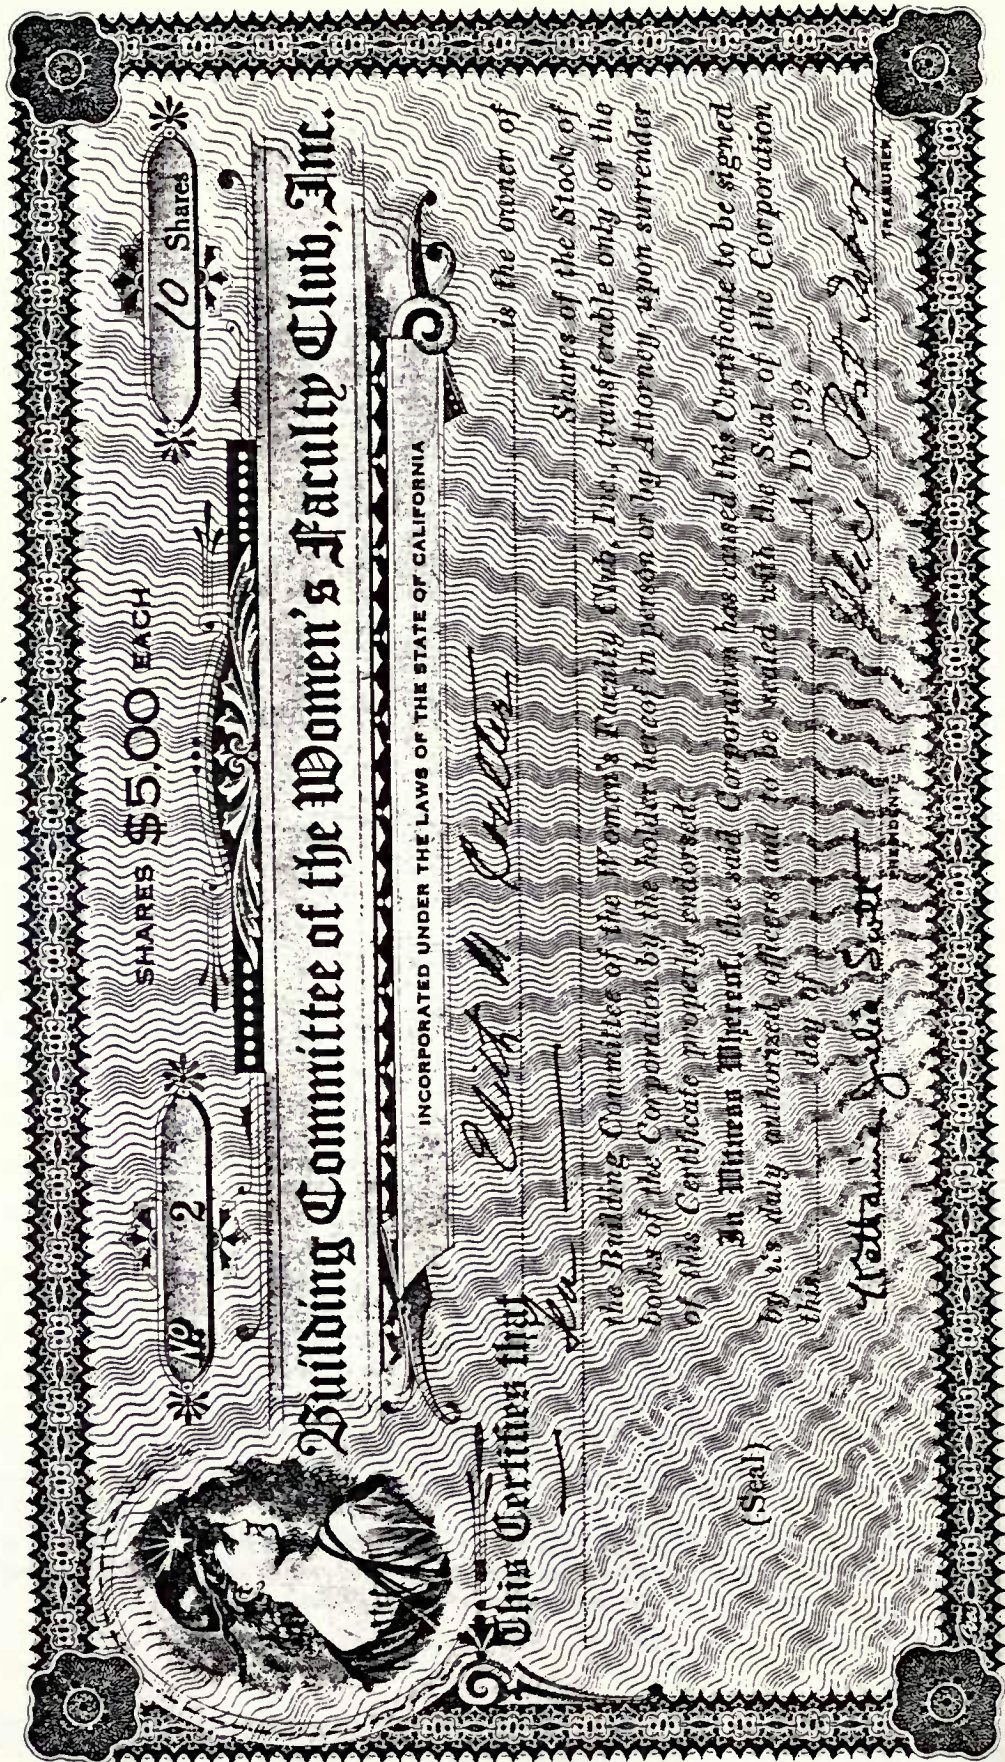 Nº 2
SHARES $5.00 EACH
10 Shares
Building Committee of the Women's Faculty Club, Inc.
INCORPORATED UNDER THE LAWS OF THE STATE OF CALIFORNIA
This Certifies that is the owner of
Shares of the Stock of
the Building Committee of the Women's Faculty Club, Inc., transferable only on the
books of the Corporation by the holder hereof in person or by Attorney, upon surrender
of this Certificate properly endorsed.
In Witness Whereof, the said Corporation has caused this Certificate to be signed
by its duly authorized officers and to be sealed with the Seal of the Corporation,
this day of A. D. 192
(Seal)
PRESIDENT
TREASURER